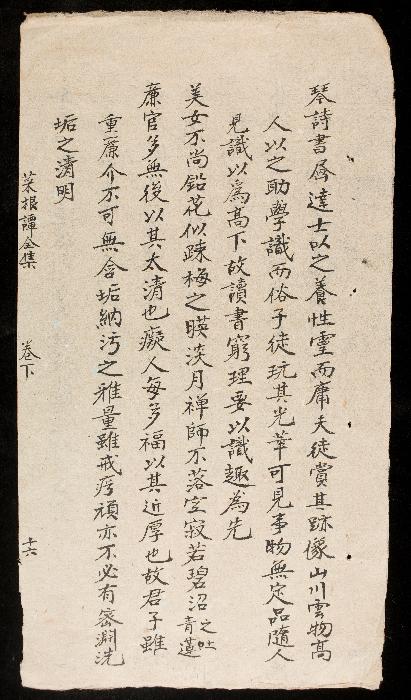 琴詩書畫達士以之養性靈而庸夫徒賞其跡像山川雲物高
人以之助學識而俗子徒玩其光華可見事物無定品隨人
見識以為高下故讀書窮理要以識趣為先
美女不尚鉛花似疎梅之暎淡月禪師不落空寂若碧沼之吐青蓮
廉官多無後以其太清也癡人每多福以其近厚也故君子雖
重廉介不可無含垢納污之雅量雖戒癡頑亦不必有察淵洗
垢之清明
菜根譚全集
卷下
十六